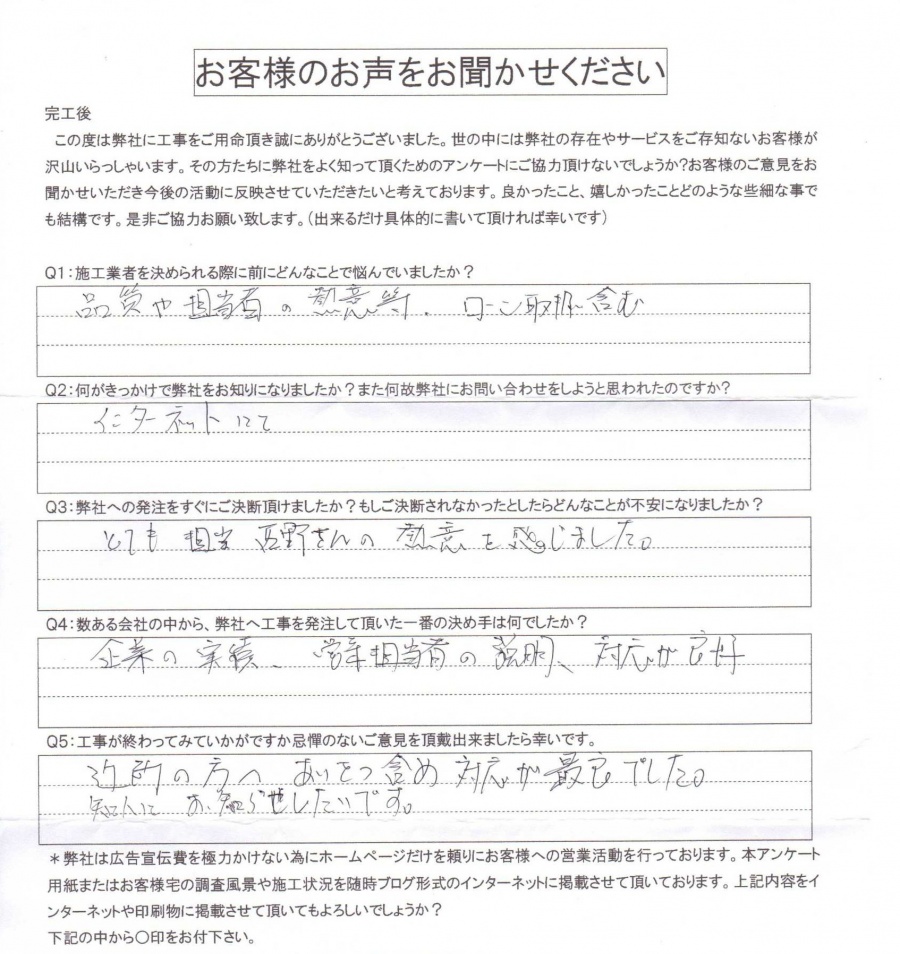 お客様のお声をお聞かせください
完工後
この度は弊社に工事をご用命頂き誠にありがとうございました。世の中には弊社の存在やサービスをご存知ないお客様が
沢山いらっしゃいます。その方たちに弊社をよく知って頂くためのアンケートにご協力頂けないでしょうか?お客様のご意見をお
聞かせいただき今後の活動に反映させていただきたいと考えております。良かったこと、嬉しかったことどのような些細な事で
も結構です。是非ご協力お願い致します。（出来るだけ具体的に書いて頂ければ幸いです）
Q1：施工業者を決められる際に前にどんなことで悩んでいましたか？
品質や担当者の熱意等、ローン取扱含む
Q2：何がきっかけで弊社をお知りになりましたか？また何故弊社にお問い合わせをしようと思われたのですか?
インターネットにて
Q3：弊社への発注をすぐにご決断頂けましたか？もしご決断されなかったとしたらどんなことが不安になりましたか？
とても 担当 西野さんの 熱意を感じました。
Q4：数ある会社の中から、弊社へ工事を発注して頂いた一番の決め手は何でしたか？
企業の実績、営業担当者の説明、対応が良好
Q5：工事が終わってみていかがですか忌憚のないご意見を頂戴出来ましたら幸いです。
近所の方へ あいさつ含め 対応が最高でした。
知人に お知らせしたいです。
＊弊社は広告宣伝費を極力かけない為にホームページだけを頼りにお客様への営業活動を行っております。本アンケート
用紙またはお客様宅の調査風景や施工状況を随時ブログ形式のインターネットに掲載させて頂いております。上記内容をイ
ンターネットや印刷物に掲載させて頂いてもよろしいでしょうか？
下記の中から○印をお付下さい。